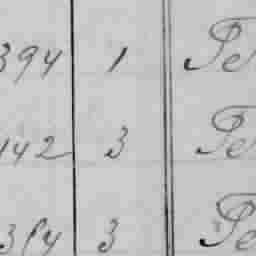 394 1 Pe
442 3 Pe
384 3 Pe